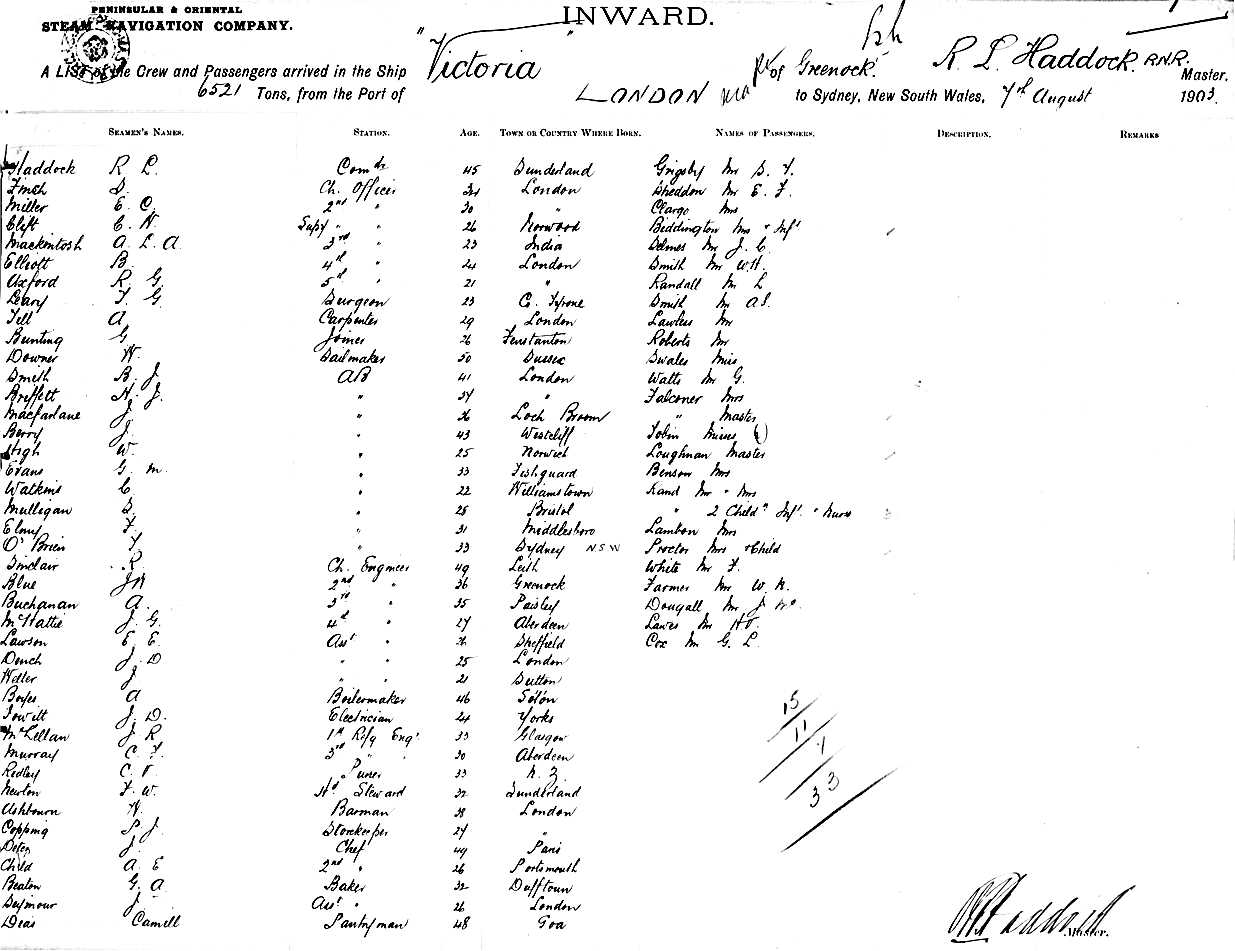 PENINSULAR & ORIENTAL
STEAM NAVIGATION COMPANY.
INWARD.
A LIST of the Crew and Passengers arrived in the Ship "Victoria" of Greenock. R. L. Haddock. R.N.R. Master,
6521 Tons, from the Port of LONDON to Sydney, New South Wales, 7th August 1903.
SEAMEN'S NAMES. STATION. AGE. TOWN OR COUNTRY WHERE BORN. NAMES OF PASSENGERS. DESCRIPTION. REMARKS
Haddock R L. Comdr 45 Sunderland Grigsby Mr S. T.
Finch D. Ch. Officer 34 London Sheddon Mr E. F.
Miller E. C. 2nd " 30 " Clargo Mrs
Clift C. N. Supy " " 26 Norwood Biddington Mrs " Inft
Mackintosh A. L. A. 3rd " 23 India Delmes Mr J. C.
Elliott B. 4th " 24 London Smith Mr W H.
Oxford R. G. 5th " 21 " Randall Mr L
Leary T. G. Surgeon 23 Co. Tyrone Smith Mr A S.
Tell A. Carpenter 29 London Lawless Mr
Bunting G. Joiner 26 Fenstanton Roberts Mr
Downer W. Sailmaker 50 Sussex Swales Miss
Smith B. J. AB 41 London Watts Mr G.
Briffett H. J. " 34 " Falconer Mrs
Macfarlane J. " 26 Loch Broom " Master
Berry J. " 43 Westcliff Tobin Misses
High W. " 25 Norwich Loughnan Master
Evans G. M. " 33 Fishguard Benson Mrs
Watkins C. " 22 Williamstown Rand Mr " Mrs
Mulligan S. " 28 Bristol " 2 Childn Inft. " Nurse
Elmy F. " 31 Middlesboro Lambon Mrs
O'Brien T. " 33 Sydney N.S.W Proctor Mrs & Child
Sinclair R. Ch. Engineer 49 Leith White Mr F.
Blue J N 2nd " 36 Greenock Farmer Mr W. N.
Buchanan A. 3rd " 35 Paisley Dougall Mr J
McHattie J. G. 4th " 27 Aberdeen Lawes Mr
Lawson E. E. Asst " 26 Sheffield Cox Mr G. L.
Dench J. D " " 25 London
J " " 21 Sutton
Boyes A Boilermaker 46 Soton
Jowitt J. D. Electrician 24 Yorks
McLellan J R 1st Rfg Engr 33 Glasgow
Murray C. F. 3rd " " 30 Aberdeen
Redley C. V. Purser 33 N. Z.
Newton F. W. Hd Steward 32 Sunderland
Ashbourn H. Barman 38 London
Copping P. J. Storekeeper 27 "
J. Chef 49 Paris
Child A. E 2nd " 26 Portsmouth
Beaton G. A Baker 32 Dufftown
Seymour J. Asst " 26 London
Dias Camill Pantryman 48 Goa
15
11
7
33
R L Haddock
Master.